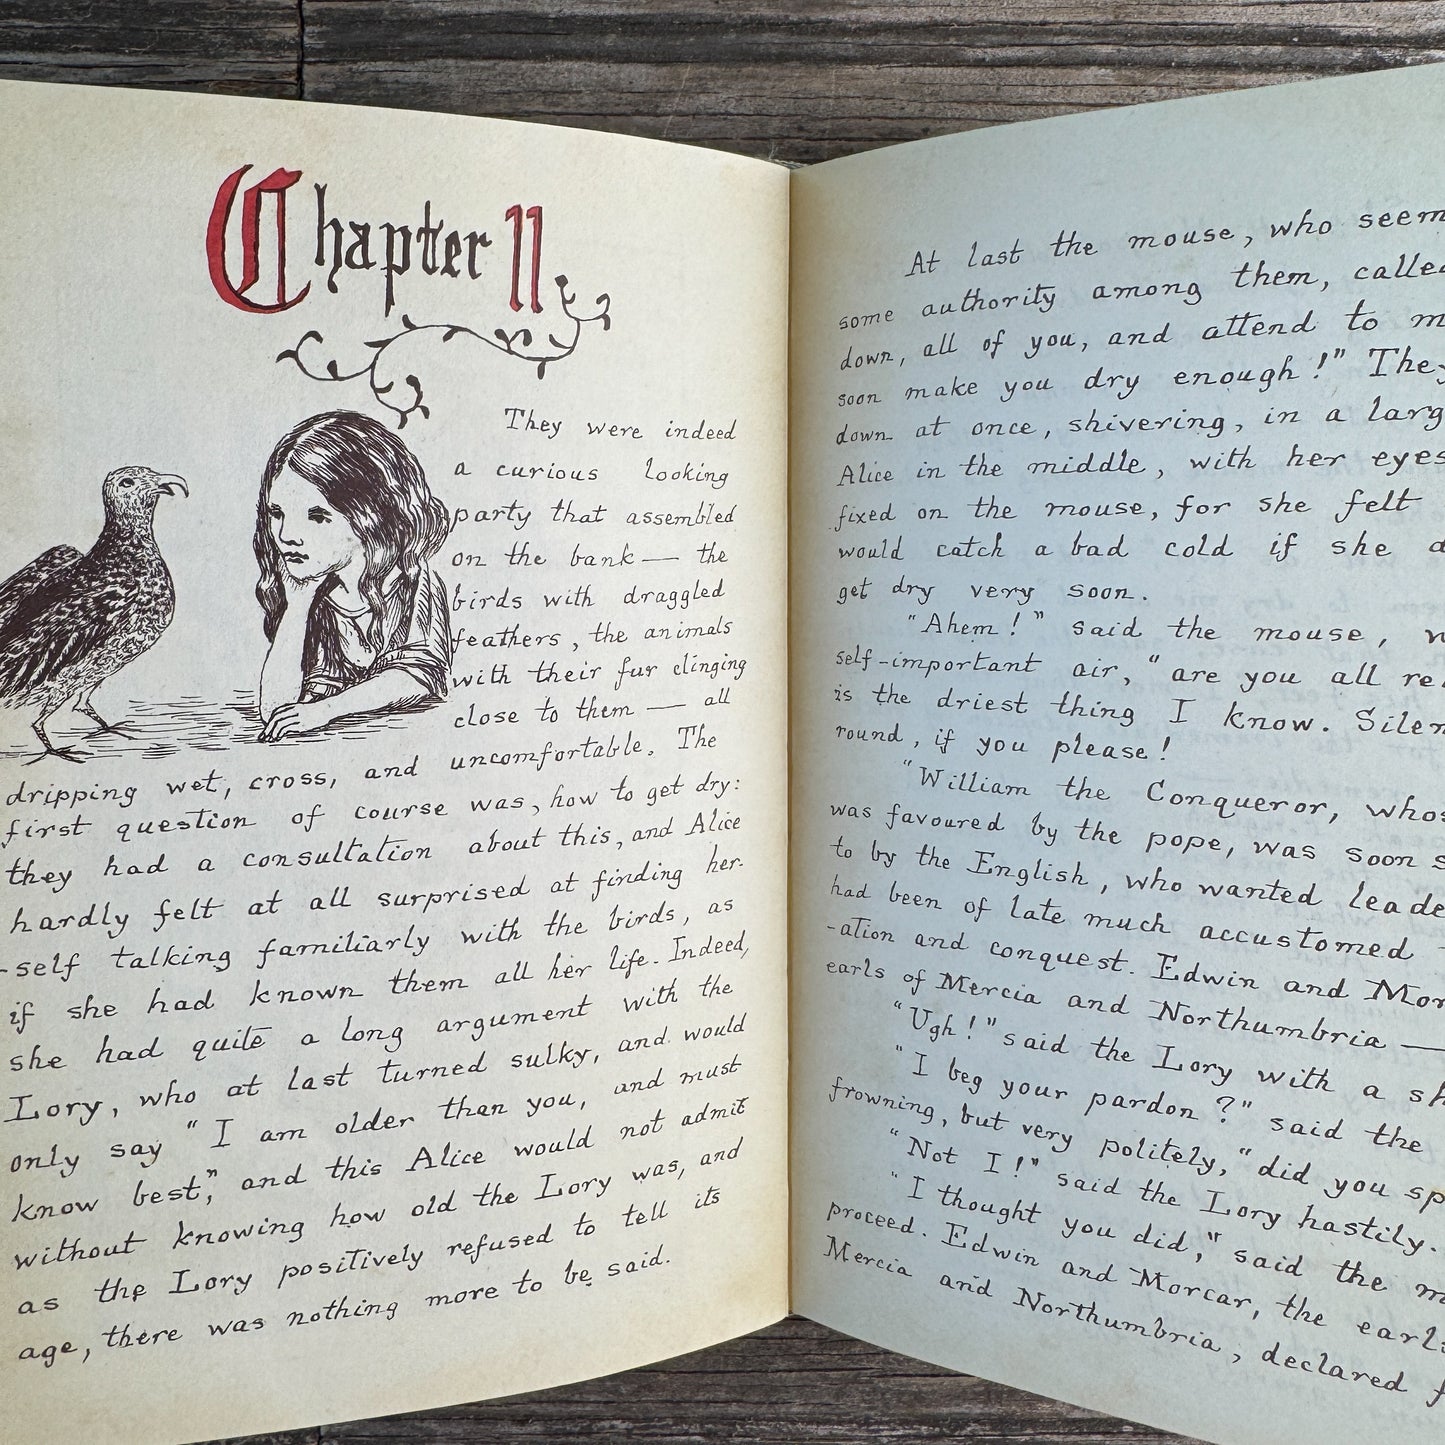 Chapter II
They were indeed
a curious looking
party that assembled
on the bank — the
birds with draggled
feathers, the animals
with their fur clinging
close to them — all
dripping wet, cross, and uncomfortable. The
first question of course was, how to get dry:
they had a consultation about this, and Alice
hardly felt at all surprised at finding her-
-self talking familiarly with the birds, as
if she had known them all her life. Indeed,
she had quite a long argument with the
Lory, who at last turned sulky, and would
only say "I am older than you, and must
know best," and this Alice would not admit
without knowing how old the Lory was, and
as the Lory positively refused to tell its
age, there was nothing more to be said.
At last the mouse, who
some authority among them,
down, all of you, and attend to
soon make you dry enough!" They
down at once, shivering, in a
Alice in the middle, with her eyes
fixed on the mouse, for she felt
would catch a bad cold if she
get dry very soon.
"Ahem!" said the mouse,
self-important air, "are you all
is the driest thing I know.
round, if you please!
"William the Conqueror,
was favoured by the pope, was soon
to by the English, who wanted
had been of late much accustomed
-ation and conquest. Edwin and
earls of Mercia and Northumbria —
"Ugh!" said the Lory with a
"I beg your pardon?" said the
frowning, but very politely, "did you
"Not I!" said the Lory hastily.
"I thought you did," said the
proceed. Edwin and Morcar, the
Mercia and Northumbria, declared